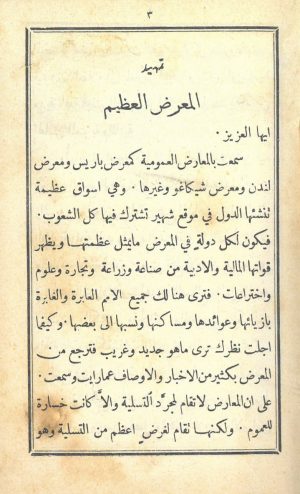 ٣
تمهيد
المعرض العظيم
ايها العزيز ٠
سمعت بالمعارض العمومية كمعرض باريس ومعرض
لندن ومعرض شيكاغو وغيرها ٠ وهي اسواق عظيمة
تنشئها الدول في موقع شهير تشترك فيها كل الشعوب ٠
فيكون لكل دولة في المعرض مايمثل عظمتها ويظهر
قواتها المالية والادبية من صناعة وزراعة وتجارة وعلوم
واختراعات ٠ فترى هنالك جميع الامم العابرة والغابرة
بازيائها وعوائدها ومساكنها ونسبها الى بعضها ٠ وكيفما
اجلت نظرك ترى ماهو جديد وغريب فترجع من
المعرض بكثير من الاخبار والاوصاف عمارايت وسمعت ٠
على ان المعارض لا تقام لمجرّد التسلية والاّ كانت خسارة
للعموم ٠ ولكنها تقام لغرض اعظم من التسلية وهو